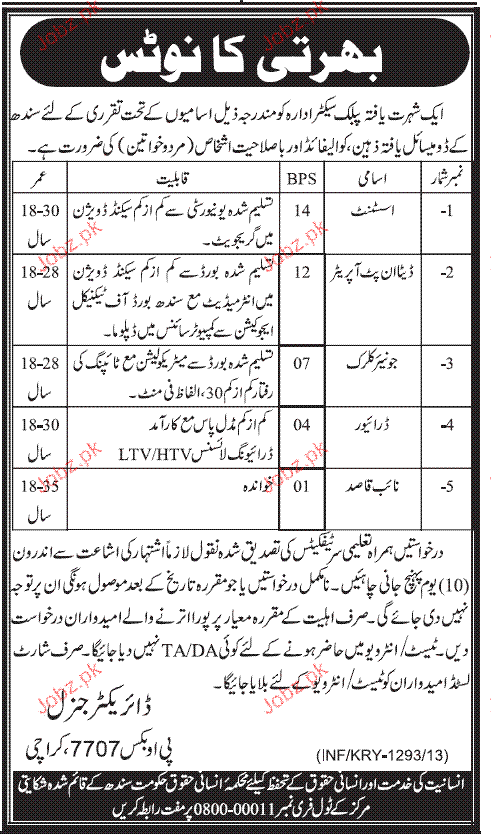 بھرتی کا نوٹس
ایک شہرت یافتہ پبلک سیکٹر ادارہ کو مندرجہ ذیل اسامیوں کے تحت تقرری کے لئے سندھ
کے ڈومیسائل یافتہ ذہین، کوالیفائڈ اور باصلاحیت اشخاص (مرد و خواتین) کی ضرورت ہے۔
نمبر شمار اسامی BPS قابلیت عمر
1- اسسٹنٹ 14 تسلیم شدہ یونیورسٹی سے کم از کم سیکنڈ ڈویژن 18-30
میں گریجویٹ۔ سال
2- ڈیٹا ان پٹ آپریٹر 12 تسلیم شدہ بورڈ سے کم از کم سیکنڈ ڈویژن 18-28
میں انٹرمیڈیٹ مع سندھ بورڈ آف ٹیکنیکل سال
ایجوکیشن سے کمپیوٹر سائنس میں ڈپلوما۔
3- جونیئر کلرک 07 تسلیم شدہ بورڈ سے میٹریکولیشن مع ٹائپنگ کی 18-28
رفتار کم از کم 30، الفاظ فی منٹ۔ سال
4- ڈرائیور 04 کم از کم مڈل پاس مع کارآمد 18-30
ڈرائیونگ لائسنس LTV/HTV سال
5- نائب قاصد 01 خواندہ 18-35
سال
درخواستیں ہمراہ تعلیمی سرٹیفکیٹس کی تصدیق شدہ نقول لازماً اشتہار کی اشاعت سے اندرون
(10) یوم پہنچ جانی چاہئیں۔ نامکمل درخواستیں یا جو مقررہ تاریخ کے بعد موصول ہونگی ان پر توجہ
نہیں دی جائے گی۔ صرف اہلیت کے مقررہ معیار پر پورا اترنے والے امیدواران درخواست
دیں۔ ٹیسٹ/ انٹرویو میں حاضر ہونے کے لئے کوئی TA/DA نہیں دیا جائیگا۔ صرف شارٹ
لسٹڈ امیدواران کو ٹیسٹ/ انٹرویو کے لئے بلایا جائیگا۔
ڈائریکٹر جنرل
پی او بکس 7707، کراچی
(INF/KRY-1293/13)
انسانیت کی خدمت اور انسانی حقوق کے تحفظ کیلئے محکمۂ انسانی حقوق حکومت سندھ کے قائم شدہ شکایتی
مرکز کے ٹول فری نمبر 00011-0800 پر مفت رابطہ کریں
Jobz.pk
Jobz.pk
Jobz.pk
Jobz.pk
Jobz.pk
Jobz.pk
Jobz.pk
Jobz.pk
Jobz.pk
Jobz.pk
Jobz.pk
Jobz.pk